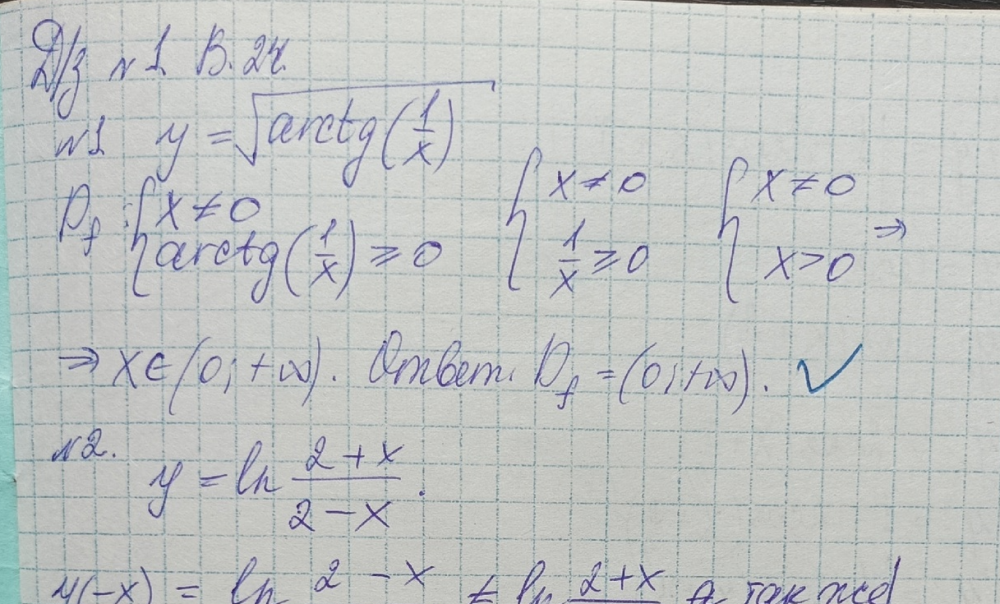 Д/з №1 В.24.
№1 y = √(arctg(1/x))
D_f: { x ≠ 0 ; arctg(1/x) ⩾ 0 { x ≠ 0 ; 1/x ⩾ 0 { x ≠ 0 ; x > 0 ⇒
⇒ x ∈ (0; +∞). Ответ: D_f = (0; +∞). ✓
№2.
y = ln (2 + x)/(2 − x).
y(−x) = ln 2 − x ≠ ln 2+x а также